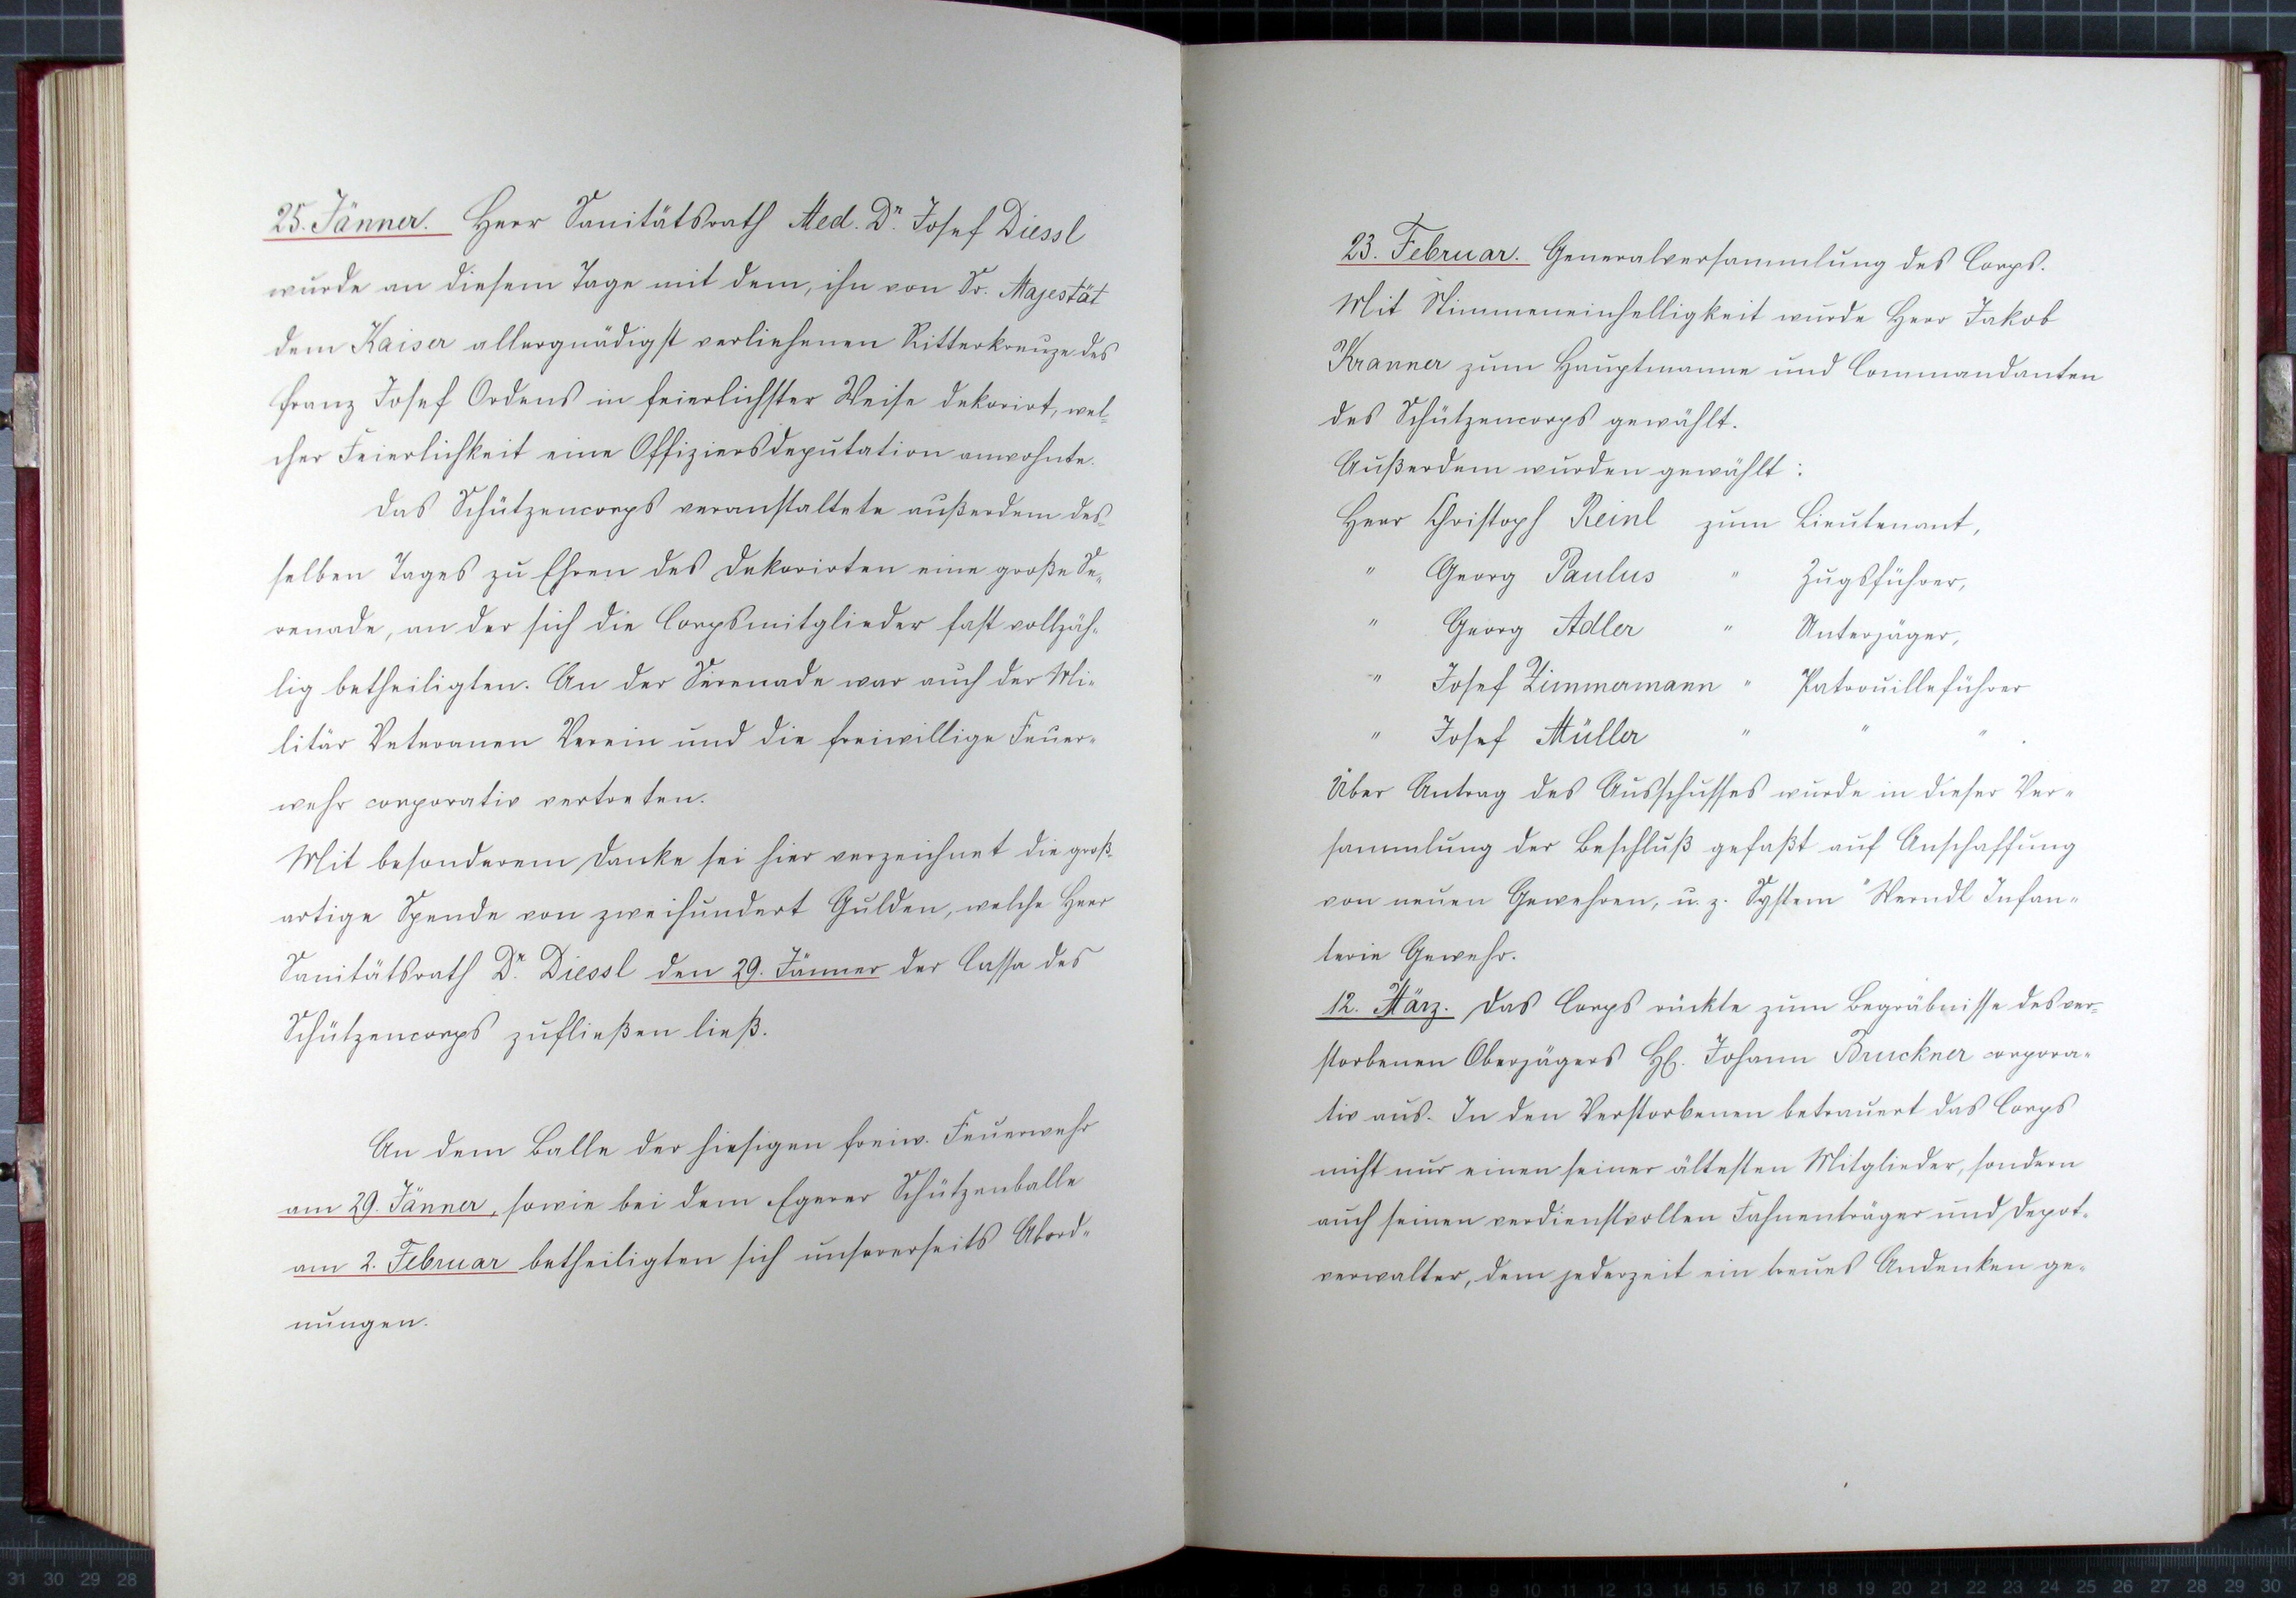 25. Jänner. Herr Sanitätsrath Med. Dr. Josef Diessl
wurde an diesem Tage mit dem, ihn von Sr. Majestät
dem Kaiser allergnädigst verliehenen Ritterkreuze des
Franz Josef Ordens in feierlichster Weise dekorirt, wel-
cher Feierlichkeit eine Offiziersdeputation anwohnte.
Das Schützencorps veranstaltete außerdem des-
selben Tages zu Ehren des Dekorirten eine große Se-
renade, an der sich die Corpsmitglieder fast vollzäh-
lig betheiligten. An der Serenade war auch der Mi-
litär Veteranen Verein und die freiwillige Feuer-
wehr corporativ vertreten.
Mit besonderem Danke sei hier verzeichnet die groß-
artige Spende von zweihundert Gulden, welche Herr
Sanitätsrath Dr. Diessl den 29. Jänner der Cassa des
Schützencorps zufließen ließ.
An dem Balle der hiesigen freiw. Feuerwehr
am 29. Jänner, sowie bei dem Egerer Schützenballe
am 2. Februar betheiligten sich unsererseits Abord-
nungen.
23. Februar. Generalversammlung des Corps.
Mit Stimmeneinhelligkeit wurde Herr Jakob
Kranner zum Hauptmanne und Commandanten
des Schützencorps gewählt.
Außerdem wurden gewählt:
Herr Christoph Reinl zum Lieutenant,
" Georg Paulus " Zugsführer,
" Georg Adler " Unterjäger,
" Josef Zimmermann " Patrouilleführer
" Josef Müller " " " .
Über Antrag des Ausschusses wurde in dieser Ver-
sammlung der Beschluß gefaßt auf Anschaffung
von neuen Gewehren, u. z. System "Werndl Infan-
terie Gewehr.
12. März. Das Corps rückte zum Begräbnisse des ver-
storbenen Oberjägers H. Johann Bruckner corpora-
tiv aus. In den Verstorbenen betrauert das Corps
nicht nur einen seiner ältesten Mitglieder, sondern
auch seinen verdienstvollen Fahnenträger und Depot-
verwalter, dem jederzeit ein treues Andenken ge-
12
31 30 29 28
1 2 3 4 5 6 7 8 9 10 11 12 13 14 15 16 17 18 19 20 21 22 23 24 25 26 27 28 29 30